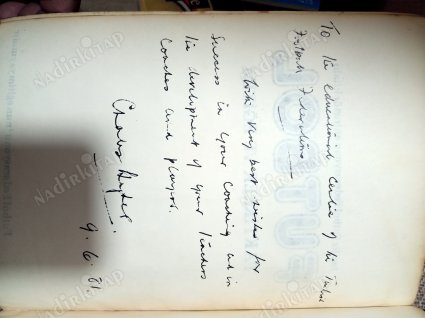 To the educational centre of the Turkish
Futbol Federation
With very best wishes for
Success in your coaching and in
the development of your Teachers
Coaches and players.
Charles
9.6.81
NADİRKİTAP
FUTBOL